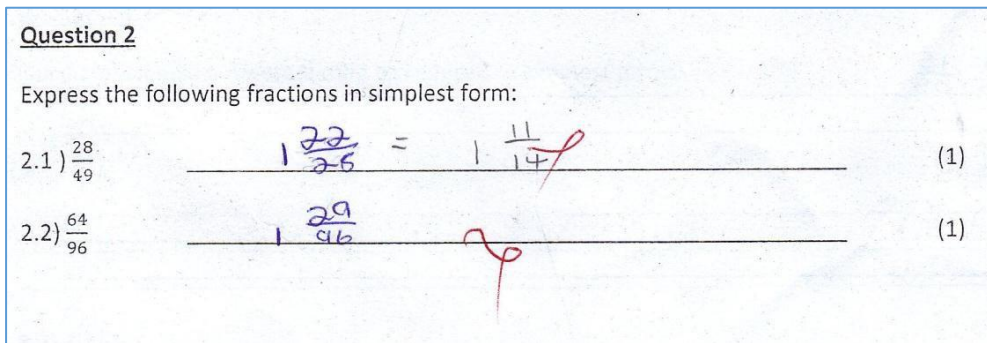 Question 2
Express the following fractions in simplest form:
2.1 ) 28/49 1 22/28 = 1 11/14 (1)
2.2) 64/96 1 29/96 (1)